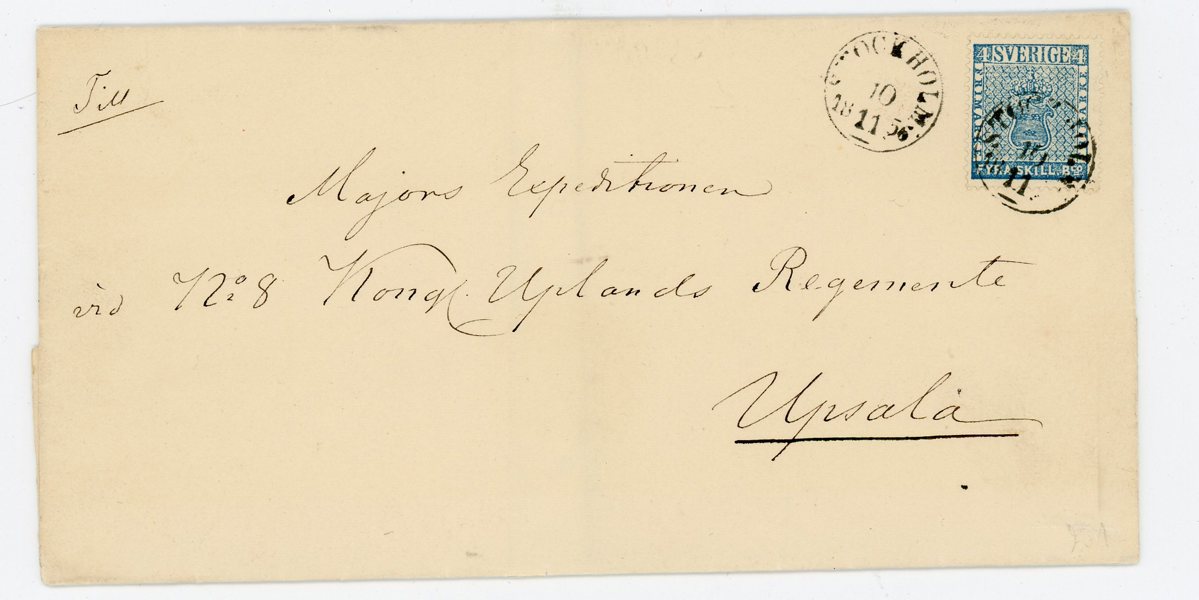 Till
Majors Expeditionen
vid No 8 Kongl. Uplands Regemente
Upsala
STOCKHOLM
10
11
1856
4 SVERIGE 4
FYRA SKILL. Bco
STOCKHOLM
10
11